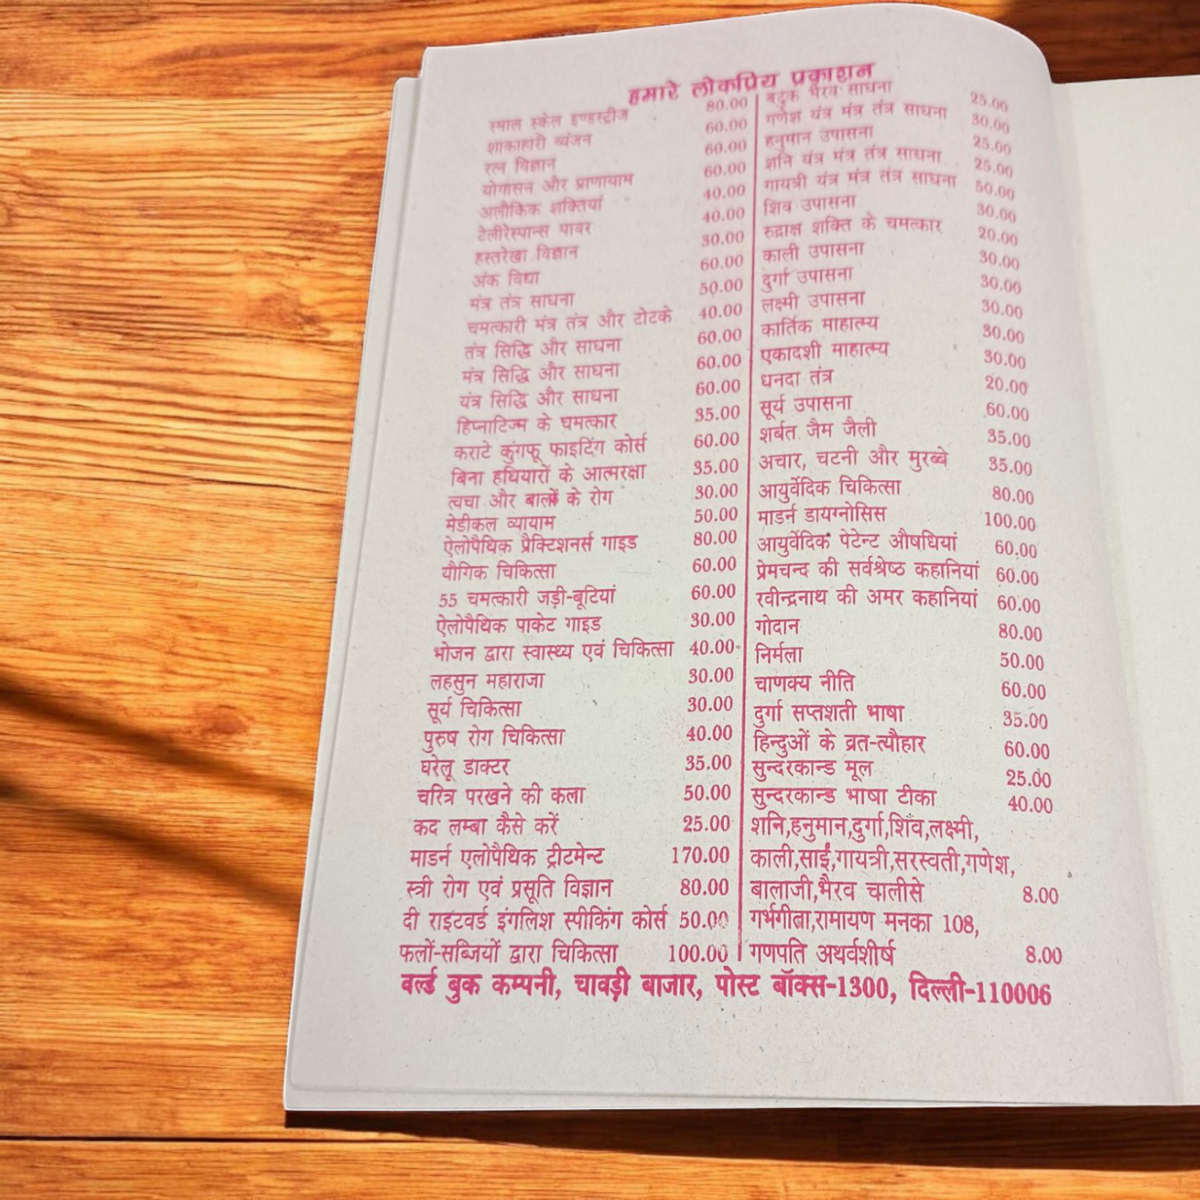 हमारे लोकप्रिय प्रकाशन
स्माल स्केल इण्डस्ट्रीज 80.00
शाकाहारी व्यंजन 60.00
रत्न विज्ञान 60.00
योगासन और प्राणायाम 60.00
अलौकिक शक्तियां 40.00
टेलीरेस्पान्स पावर 40.00
हस्तरेखा विज्ञान 30.00
अंक विद्या 60.00
मंत्र तंत्र साधना 50.00
चमत्कारी मंत्र तंत्र और टोटके 40.00
तंत्र सिद्धि और साधना 60.00
मंत्र सिद्धि और साधना 60.00
यंत्र सिद्धि और साधना 60.00
हिप्नाटिज्म के चमत्कार 35.00
कराटे कुंगफू फाइटिंग कोर्स 60.00
बिना हथियारों के आत्मरक्षा 35.00
त्वचा और बालों के रोग 30.00
मेडीकल व्यायाम 50.00
ऐलोपैथिक प्रैक्टिशनर्स गाइड 80.00
यौगिक चिकित्सा 60.00
55 चमत्कारी जड़ी-बूटियां 60.00
ऐलोपैथिक पाकेट गाइड 30.00
भोजन द्वारा स्वास्थ्य एवं चिकित्सा 40.00
लहसुन महाराजा 30.00
सूर्य चिकित्सा 30.00
पुरुष रोग चिकित्सा 40.00
घरेलू डाक्टर 35.00
चरित्र परखने की कला 50.00
कद लम्बा कैसे करें 25.00
माडर्न एलोपैथिक ट्रीटमेन्ट 170.00
स्त्री रोग एवं प्रसूति विज्ञान 80.00
दी राइटवर्ड इंगलिश स्पीकिंग कोर्स 50.00
फलों-सब्जियों द्वारा चिकित्सा 100.00
बटुक भैरव साधना 25.00
गणेश यंत्र मंत्र तंत्र साधना 30.00
हनुमान उपासना 25.00
शनि यंत्र मंत्र तंत्र साधना 25.00
गायत्री यंत्र मंत्र तंत्र साधना 50.00
शिव उपासना 30.00
रुद्राक्ष शक्ति के चमत्कार 20.00
काली उपासना 30.00
दुर्गा उपासना 30.00
लक्ष्मी उपासना 30.00
कार्तिक माहात्म्य 30.00
एकादशी माहात्म्य 30.00
धनदा तंत्र 20.00
सूर्य उपासना 60.00
शर्बत जैम जैली 35.00
अचार, चटनी और मुरब्बे 35.00
आयुर्वेदिक चिकित्सा 80.00
माडर्न डायग्नोसिस 100.00
आयुर्वेदिक पेटेन्ट औषधियां 60.00
प्रेमचन्द की सर्वश्रेष्ठ कहानियां 60.00
रवीन्द्रनाथ की अमर कहानियां 60.00
गोदान 80.00
निर्मला 50.00
चाणक्य नीति 60.00
दुर्गा सप्तशती भाषा 35.00
हिन्दुओं के व्रत-त्यौहार 60.00
सुन्दरकान्ड मूल 25.00
सुन्दरकान्ड भाषा टीका 40.00
शनि,हनुमान,दुर्गा,शिव,लक्ष्मी,
काली,साईं,गायत्री,सरस्वती,गणेश,
बालाजी,भैरव चालीसे 8.00
गर्भगीता,रामायण मनका 108,
गणपति अथर्वशीर्ष 8.00
वर्ल्ड बुक कम्पनी, चावड़ी बाजार, पोस्ट बॉक्स-1300, दिल्ली-110006